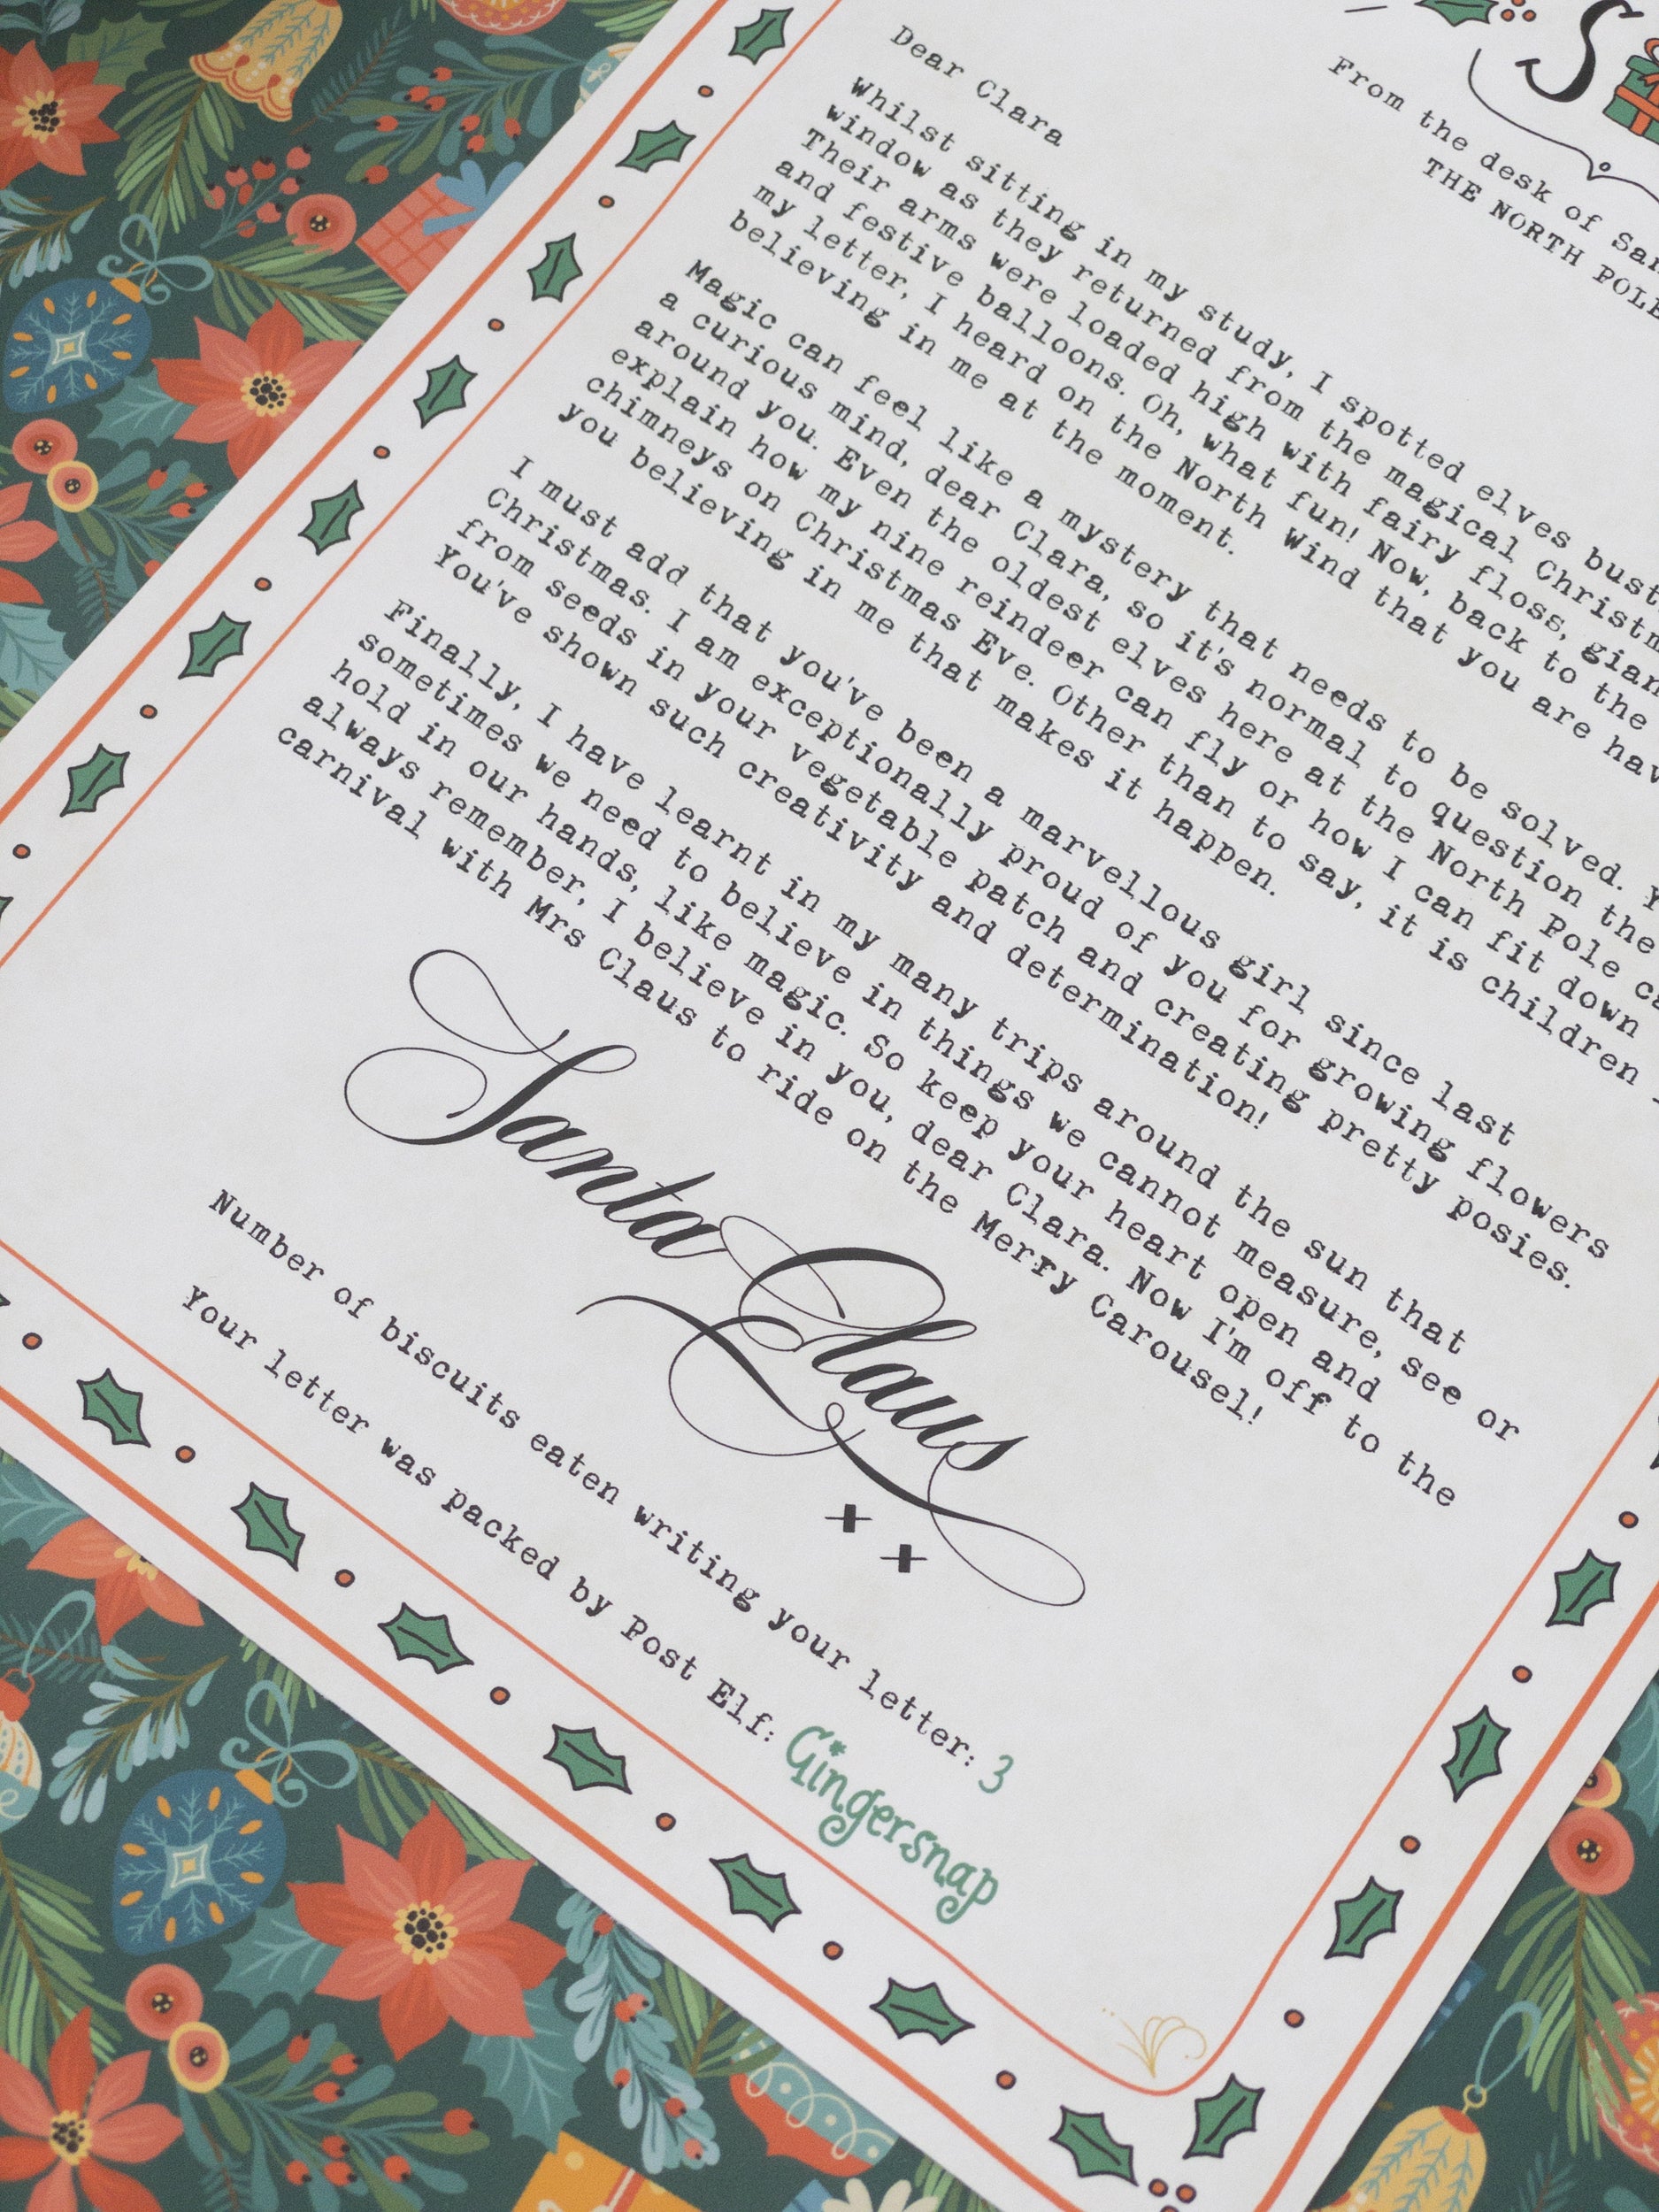 S
From the desk of
THE NORTH POLE
Dear Clara
Whilst sitting in my study, I spotted elves
window as they returned from the magical
Their arms were loaded high with fairy floss,
and festive balloons. Oh, what fun! Now, back to the
my letter, I heard on the North Wind that you are
believing in me at the moment.
Magic can feel like a mystery that needs to be solved.
a curious mind, dear Clara, so it's normal to question the
around you. Even the oldest elves here at the North Pole
explain how my nine reindeer can fly or how I can fit down
chimneys on Christmas Eve. Other than to say, it is children
you believing in me that makes it happen.
I must add that you've been a marvellous girl since last
Christmas. I am exceptionally proud of you for growing flowers
from seeds in your vegetable patch and creating pretty posies.
You've shown such creativity and determination!
Finally, I have learnt in my many trips around the sun that
sometimes we need to believe in things we cannot measure, see or
hold in our hands, like magic. So keep your heart open and
always remember, I believe in you, dear Clara. Now I'm off to the
carnival with Mrs Claus to ride on the Merry Carousel!
Santa Claus
x x
Number of biscuits eaten writing your letter: 3
Your letter was packed by Post Elf: Gingersnap